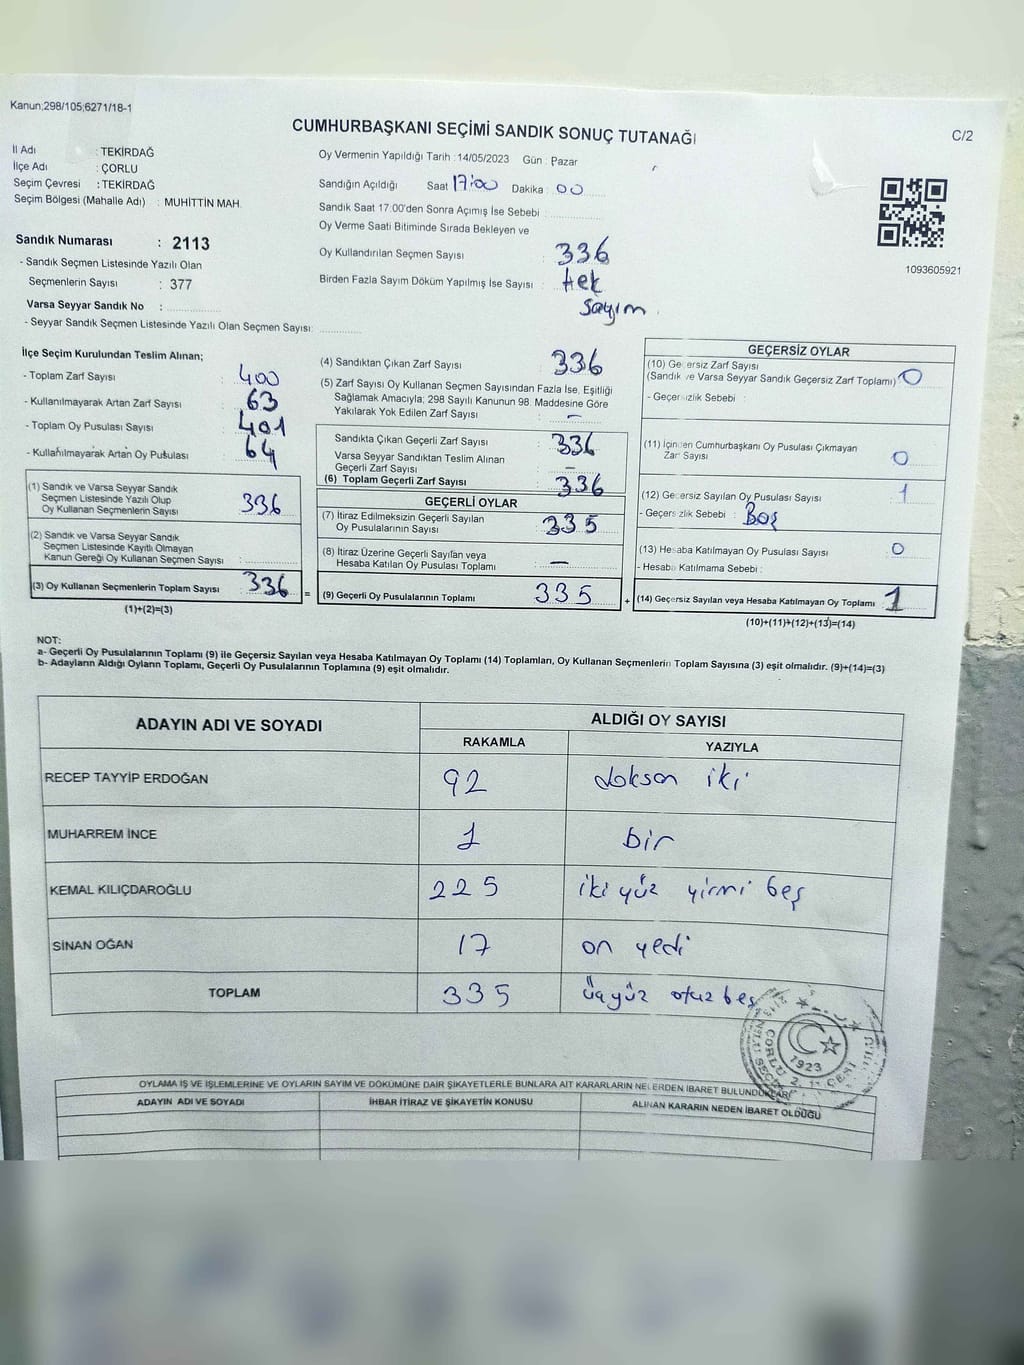 Kanun;298/105;6271/18-1
CUMHURBAŞKANI SEÇİMİ SANDIK SONUÇ TUTANAĞI
C/2
İl Adı : TEKİRDAĞ
İlçe Adı : ÇORLU
Seçim Çevresi : TEKİRDAĞ
Seçim Bölgesi (Mahalle Adı) : MUHİTTİN MAH.
Sandık Numarası : 2113
- Sandık Seçmen Listesinde Yazılı Olan
Seçmenlerin Sayısı : 377
Varsa Seyyar Sandık No :
- Seyyar Sandık Seçmen Listesinde Yazılı Olan Seçmen Sayısı:
Oy Vermenin Yapıldığı Tarih :14/05/2023 Gün : Pazar
Sandığın Açıldığı Saat 17:00 Dakika : 00
Sandık Saat 17:00'den Sonra Açımış İse Sebebi :
Oy Verme Saati Bitiminde Sırada Bekleyen ve
Oy Kullandırılan Seçmen Sayısı : 336
Birden Fazla Sayım Döküm Yapılmış İse Sayısı : tek
sayım
1093605921
İlçe Seçim Kurulundan Teslim Alınan;
- Toplam Zarf Sayısı : 400
- Kullanılmayarak Artan Zarf Sayısı : 63
- Toplam Oy Pusulası Sayısı : 401
- Kullanılmayarak Artan Oy Pusulası : 64
(1) Sandık ve Varsa Seyyar Sandık
Seçmen Listesinde Yazılı Olup
Oy Kullanan Seçmenlerin Sayısı : 336
(2) Sandık ve Varsa Seyyar Sandık
Seçmen Listesinde Kayıtlı Olmayan
Kanun Gereği Oy Kullanan Seçmen Sayısı :
(3) Oy Kullanan Seçmenlerin Toplam Sayısı : 336
(1)+(2)=(3)
(4) Sandıktan Çıkan Zarf Sayısı : 336
(5) Zarf Sayısı Oy Kullanan Seçmen Sayısından Fazla İse, Eşitliği
Sağlamak Amacıyla; 298 Sayılı Kanunun 98. Maddesine Göre
Yakılarak Yok Edilen Zarf Sayısı : –
Sandıkta Çıkan Geçerli Zarf Sayısı : 336
Varsa Seyyar Sandıktan Teslim Alınan
Geçerli Zarf Sayısı : –
(6) Toplam Geçerli Zarf Sayısı : 336
GEÇERLİ OYLAR
(7) İtiraz Edilmeksizin Geçerli Sayılan
Oy Pusulalarının Sayısı : 335
(8) İtiraz Üzerine Geçerli Sayılan veya
Hesaba Katılan Oy Pusulası Toplamı : –
= (9) Geçerli Oy Pusulalarının Toplamı : 335
GEÇERSİZ OYLAR
(10) Geçersiz Zarf Sayısı
(Sandık ve Varsa Seyyar Sandık Geçersiz Zarf Toplamı) : 0
- Geçersizlik Sebebi :
(11) İçinden Cumhurbaşkanı Oy Pusulası Çıkmayan
Zarf Sayısı : 0
(12) Geçersiz Sayılan Oy Pusulası Sayısı : 1
- Geçersizlik Sebebi : Boş
(13) Hesaba Katılmayan Oy Pusulası Sayısı : 0
- Hesaba Katılmama Sebebi :
+ (14) Geçersiz Sayılan veya Hesaba Katılmayan Oy Toplamı : 1
(10)+(11)+(12)+(13)=(14)
NOT:
a- Geçerli Oy Pusulalarının Toplamı (9) ile Geçersiz Sayılan veya Hesaba Katılmayan Oy Toplamı (14) Toplamları, Oy Kullanan Seçmenlerin Toplam Sayısına (3) eşit olmalıdır. (9)+(14)=(3)
b- Adayların Aldığı Oyların Toplamı, Geçerli Oy Pusulalarının Toplamına (9) eşit olmalıdır.
ADAYIN ADI VE SOYADI
ALDIĞI OY SAYISI
RAKAMLA YAZIYLA
RECEP TAYYİP ERDOĞAN 92 doksan iki
MUHARREM İNCE 1 bir
KEMAL KILIÇDAROĞLU 225 iki yüz yirmi beş
SİNAN OĞAN 17 on yedi
TOPLAM 335 üçyüz otuz beş
1923
ÇORLU 2.
OYLAMA İŞ VE İŞLEMLERİNE VE OYLARIN SAYIM VE DÖKÜMÜNE DAİR ŞİKAYETLERLE BUNLARA AİT KARARLARIN NELERDEN İBARET BULUNDUKLARI
ADAYIN ADI VE SOYADI İHBAR İTİRAZ VE ŞİKAYETİN KONUSU ALINAN KARARIN NEDEN İBARET OLDUĞU